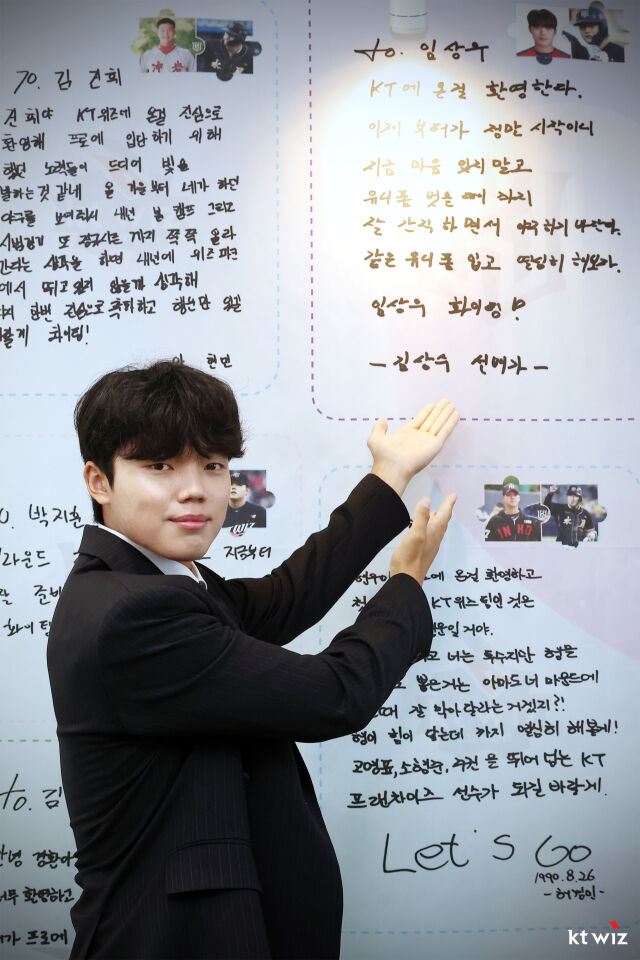 to. 김 건희
건희야 KT위즈에 온걸 진심으로
환영해 프로에 입단하기 위해
했던 노력들이 드디어 빛을
발하는것 같네 올 가을부터 네가 하던
야구를 보여줘서 내년 봄 캠프 그리고
시범경기 또 정규시즌 까지 쭉 쭉 올라
간다는 생각을 하면 내년에 위즈 파크
에서 뛰고 있지 않을까 생각해
다시 한번 진심으로 축하하고
화이팅!
현민
to. 임상우
KT에 온걸 환영한다.
이제 야구가 정말 시작이니
지금 마음 잊지말고
유니폼 벗을 때 까지
잘 간직 하면서 야구하기 바란다.
같은 유니폼 입고 열심히 해보자.
임상우 화이팅!
- 김상수 선배가 -
박지훈
라운드 지금부터
준비
화이팅
WIZ
INHO
온걸 환영하고
KT위즈 팀인 것은
일거야.
너는 투수지만 형을
뽑은거는 아마도 너 마운드에
때 잘 막아달라는 거겠지?!
형이 힘이 닿는데 까지 열심히 해볼게!
고영표, 소형준, 주권 을 뛰어 넘는 KT
프랜차이즈 선수가 되길 바랄게.
Let's Go
1990.8.26
- 허경민 -
to. 김
안녕 경환아
너무 환영하고
프로에
kt wiz